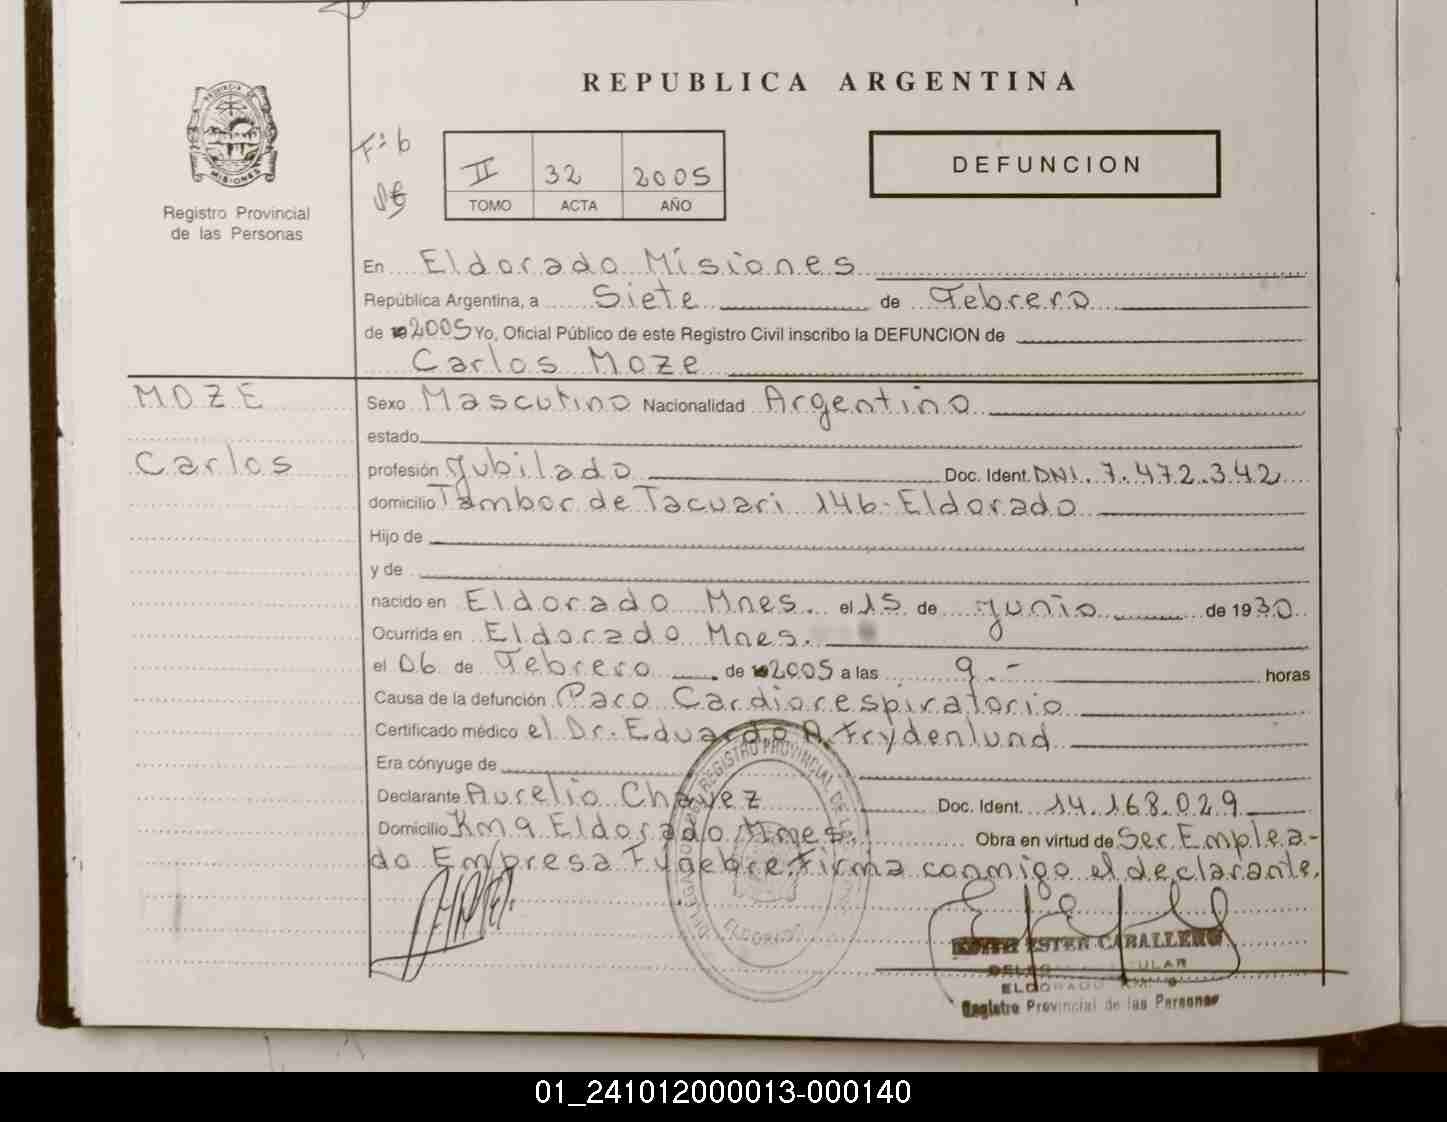 REPUBLICA ARGENTINA
PROVINCIA DE
MISIONES
Registro Provincial
de las Personas
Fº 6
II 32 2005
TOMO ACTA AÑO
DEFUNCION
En Eldorado Misiones
República Argentina, a Siete de Febrero
de 2005 Yo, Oficial Público de este Registro Civil inscribo la DEFUNCION de
Carlos Moze
MOZE
Carlos
Sexo Masculino Nacionalidad Argentino
estado
profesión Jubilado Doc. Ident. DNI. 7.472.342
domicilio Tambor de Tacuari 146-Eldorado
Hijo de
y de
nacido en Eldorado Mnes. el 15 de Junio de 1930
Ocurrida en Eldorado Mnes.
el 06 de Febrero de 2005 a las 9.- horas
Causa de la defunción Paro Cardiorespiratorio
Certificado médico el Dr. Eduardo A. Frydenlund
Era cónyuge de
Declarante Aurelio Chavez Doc. Ident. 14.168.029
Domicilio Km 9 Eldorado Mnes. Obra en virtud de Ser Emplea-
do Empresa Fugebre. Firma conmigo el declarante.
REGISTRO PROVINCIAL DE
ELDORADO
ESTER CABALLERO
ELDORADO
Registro Provincial de las Personas
01_241012000013-000140